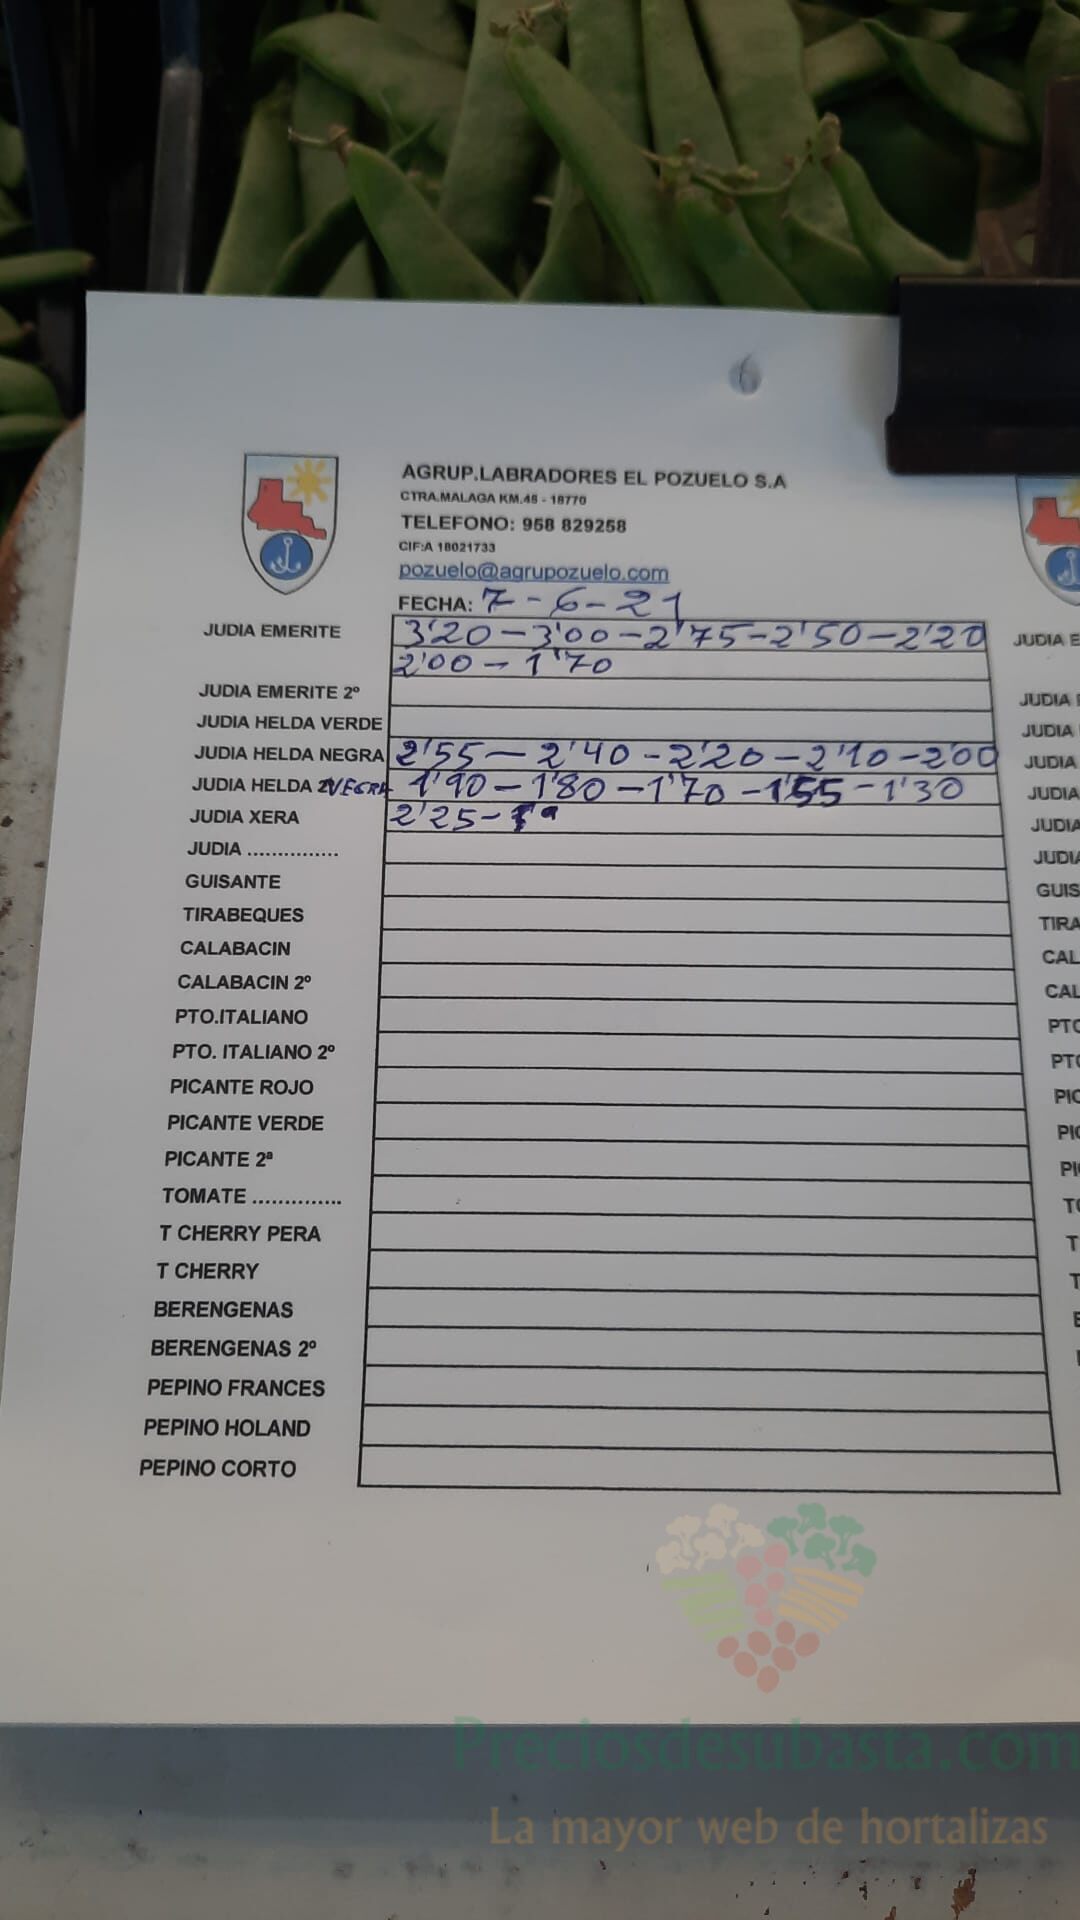 6
AGRUP.LABRADORES EL POZUELO S.A
CTRA.MALAGA KM.45 - 18770
TELEFONO: 958 829258
CIF:A 18021733
pozuelo@agrupozuelo.com
FECHA: 7-6-21
JUDIA EMERITE 3'20-3'00-2'75-2'50-2'20
2'00-1'70
JUDIA EMERITE 2º
JUDIA HELDA VERDE
JUDIA HELDA NEGRA 2'55-2'40-2'20-2'10-2'00
JUDIA HELDA NEGRA 1'90-1'80-1'70-1'55-1'30
JUDIA XERA 2'25-
JUDIA ...............
GUISANTE
TIRABEQUES
CALABACIN
CALABACIN 2º
PTO.ITALIANO
PTO. ITALIANO 2º
PICANTE ROJO
PICANTE VERDE
PICANTE 2ª
TOMATE ..............
T CHERRY PERA
T CHERRY
BERENGENAS
BERENGENAS 2º
PEPINO FRANCES
PEPINO HOLAND
PEPINO CORTO
JUDIA E
JUDIA
JUDIA
JUDIA
JUDIA
JUDIA
JUDIA
GUIS
TIRA
CAL
CAL
PTO
PTO
PIC
PIC
PI
TO
T
T
Preciosdesubasta.com
La mayor web de hortalizas